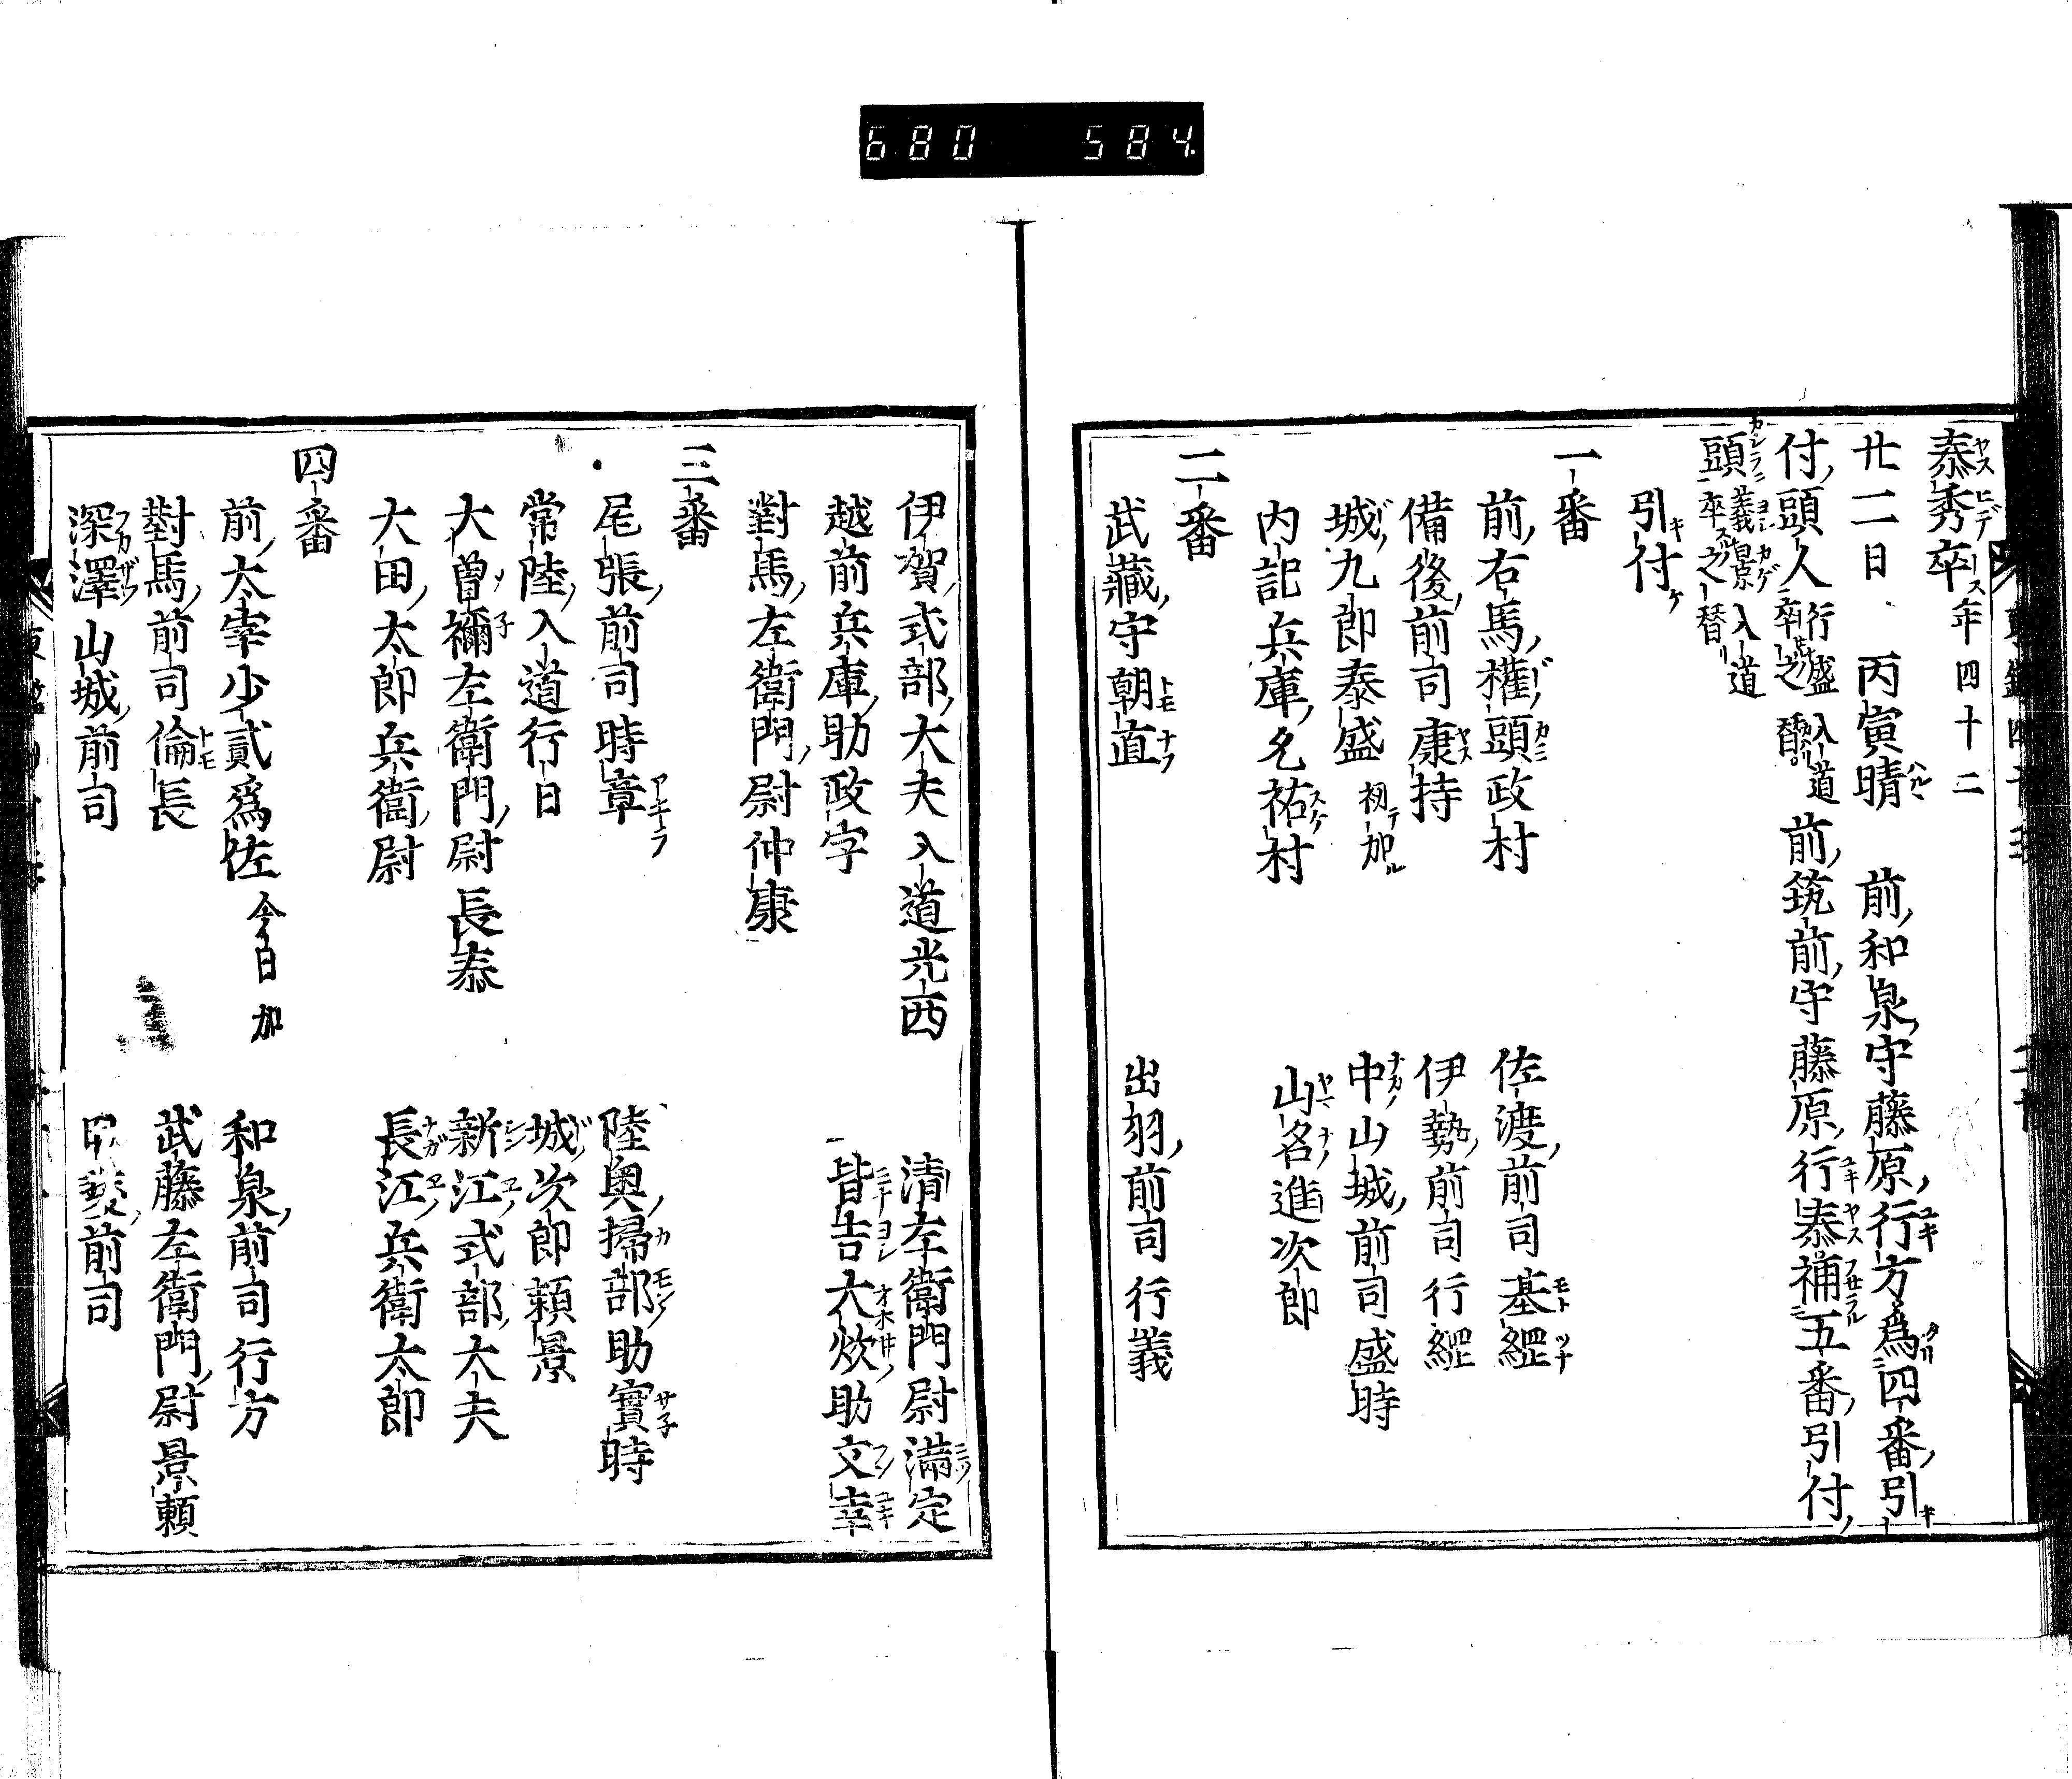 680 584.
泰秀卒年四十二
廿二日丙寅晴 前和泉守藤原行方爲四番引
付頭人行盛入道卒去之替前筑前守藤原行泰補五番引付
頭義景入道卒之替
引付
一番
前右馬權頭政村 佐渡前司基綱
備後前司康持 伊勢前司行綱
城九郎泰盛初加 中山城前司盛時
内記兵庫允祐村 山名進次郎
二番
武藏守朝直 出羽前司行義
伊賀式部大夫入道光西 清左衛門尉滿定
越前兵庫助政宗 皆吉大炊助文幸
對馬左衛門尉仲康
三番
尾張前司時章 陸奥掃部助實時
常陸入道行日 城次郎頼景
大曾禰左衛門尉長泰 新江式部大夫
大田太郎兵衛尉 長江兵衛太郎
四番
前太宰少貳爲佐今日加 和泉前司行方
對馬前司倫長 武藤左衛門尉景頼
深澤山城前司 甲斐前司